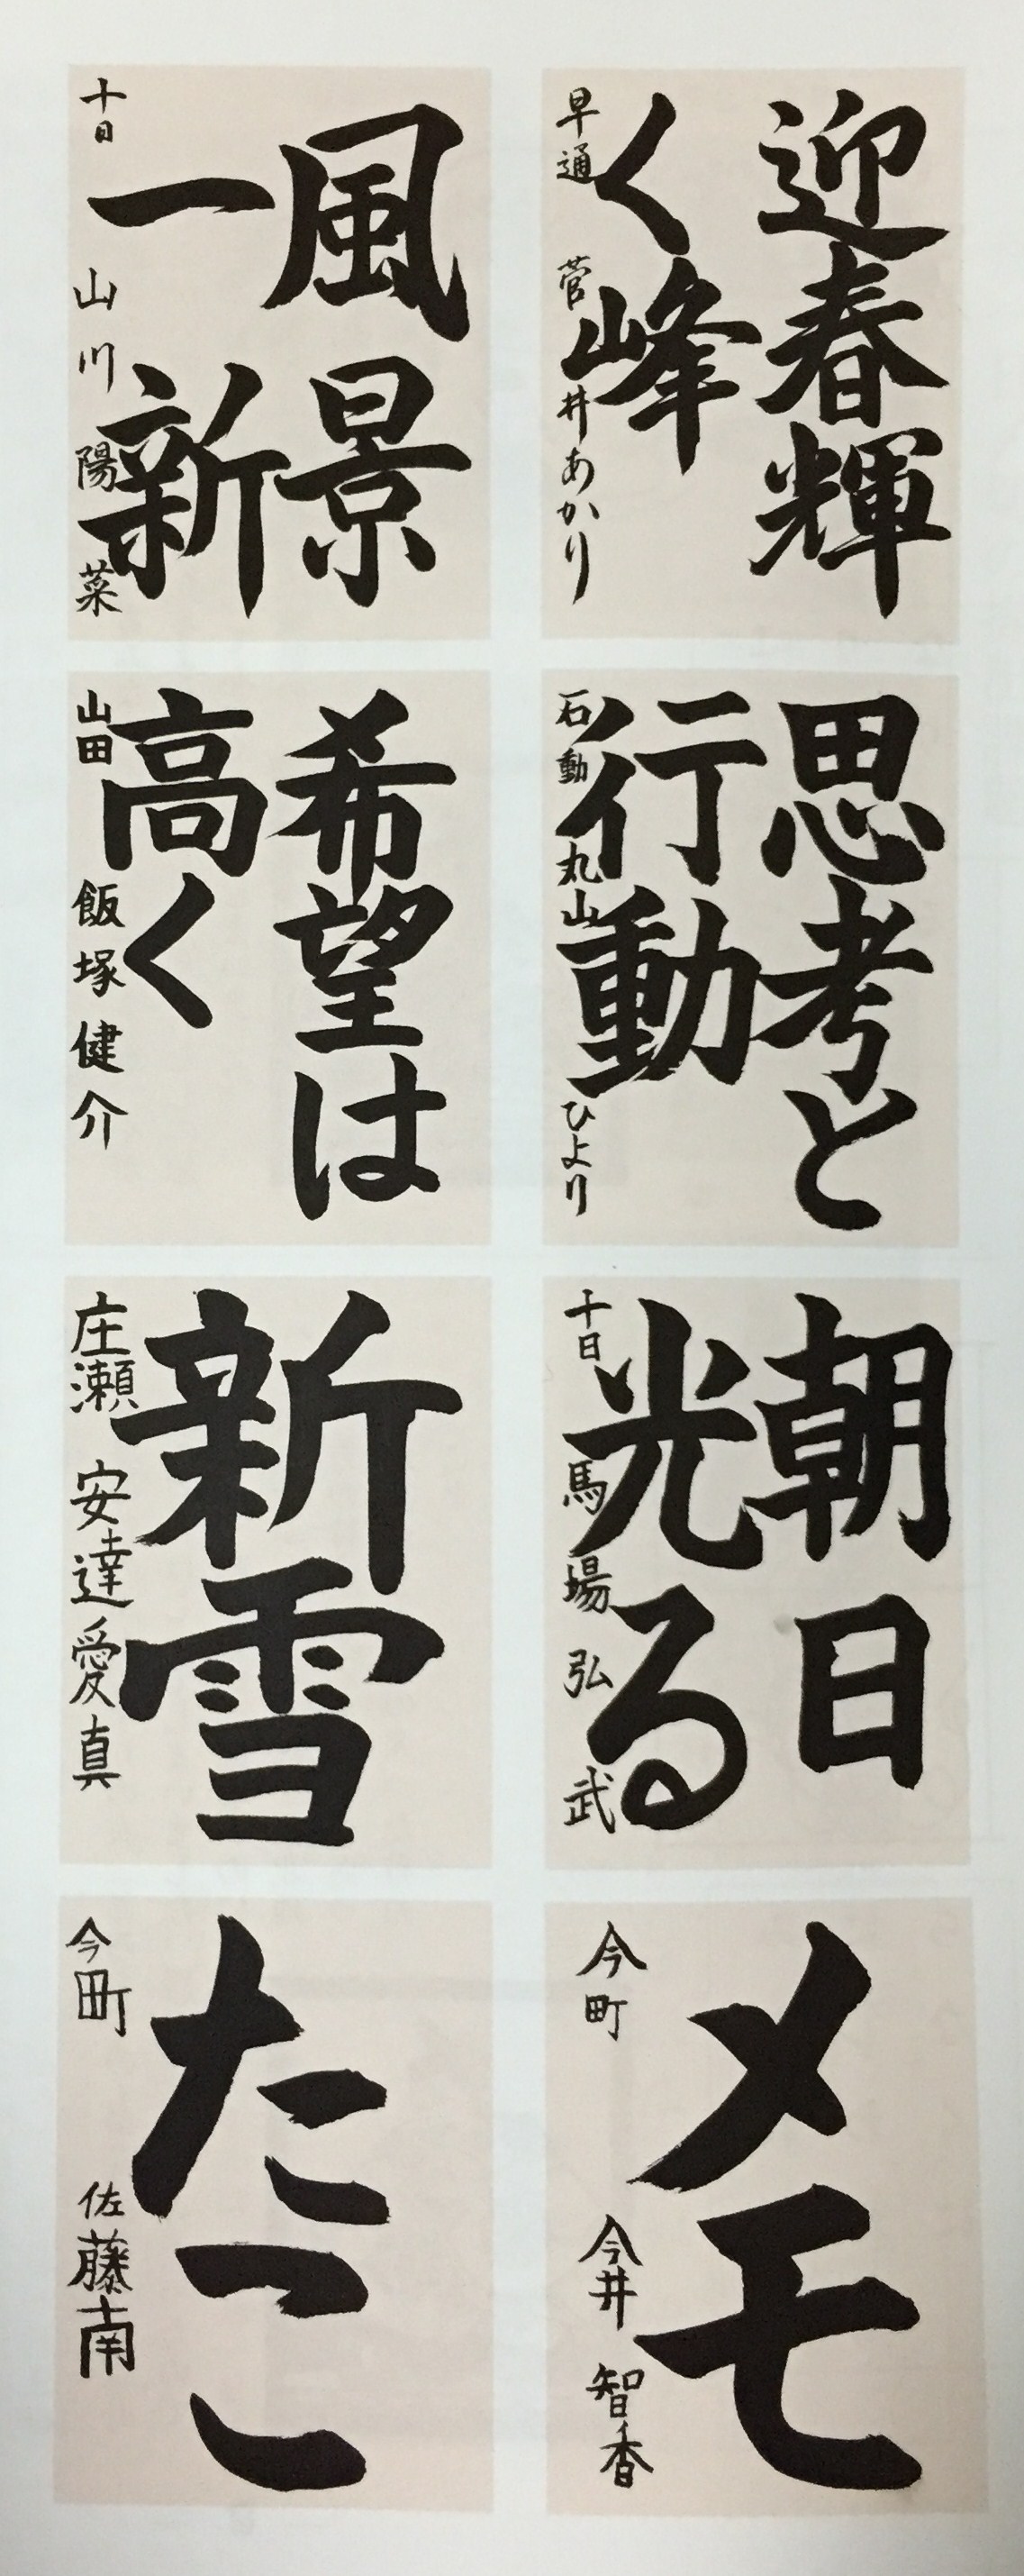 迎春輝
く峰
早通 菅井あかり
風景
一新
十日 山川陽菜
思考と
行動
石動 丸山ひより
希望は
高く
山田 飯塚健介
朝日
光る
十日 馬場弘武
新雪
庄瀬 安達愛真
メモ
今町 今井智香
たこ
今町 佐藤南